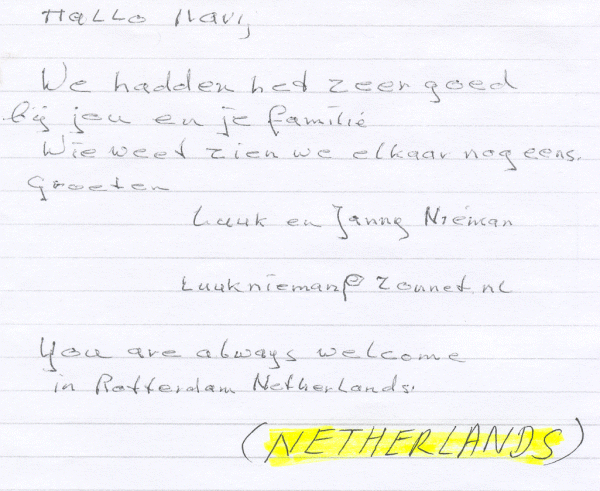 Hallo Mavij
We hadden het zeer goed
bij jou en je familie
Wie weet zien we elkaar nog eens.
Groeten
Luuk en Janny Nieman
Luuknieman@zonnet.nl
You are always welcome
in Rotterdam Netherlands.
(NETHERLANDS)